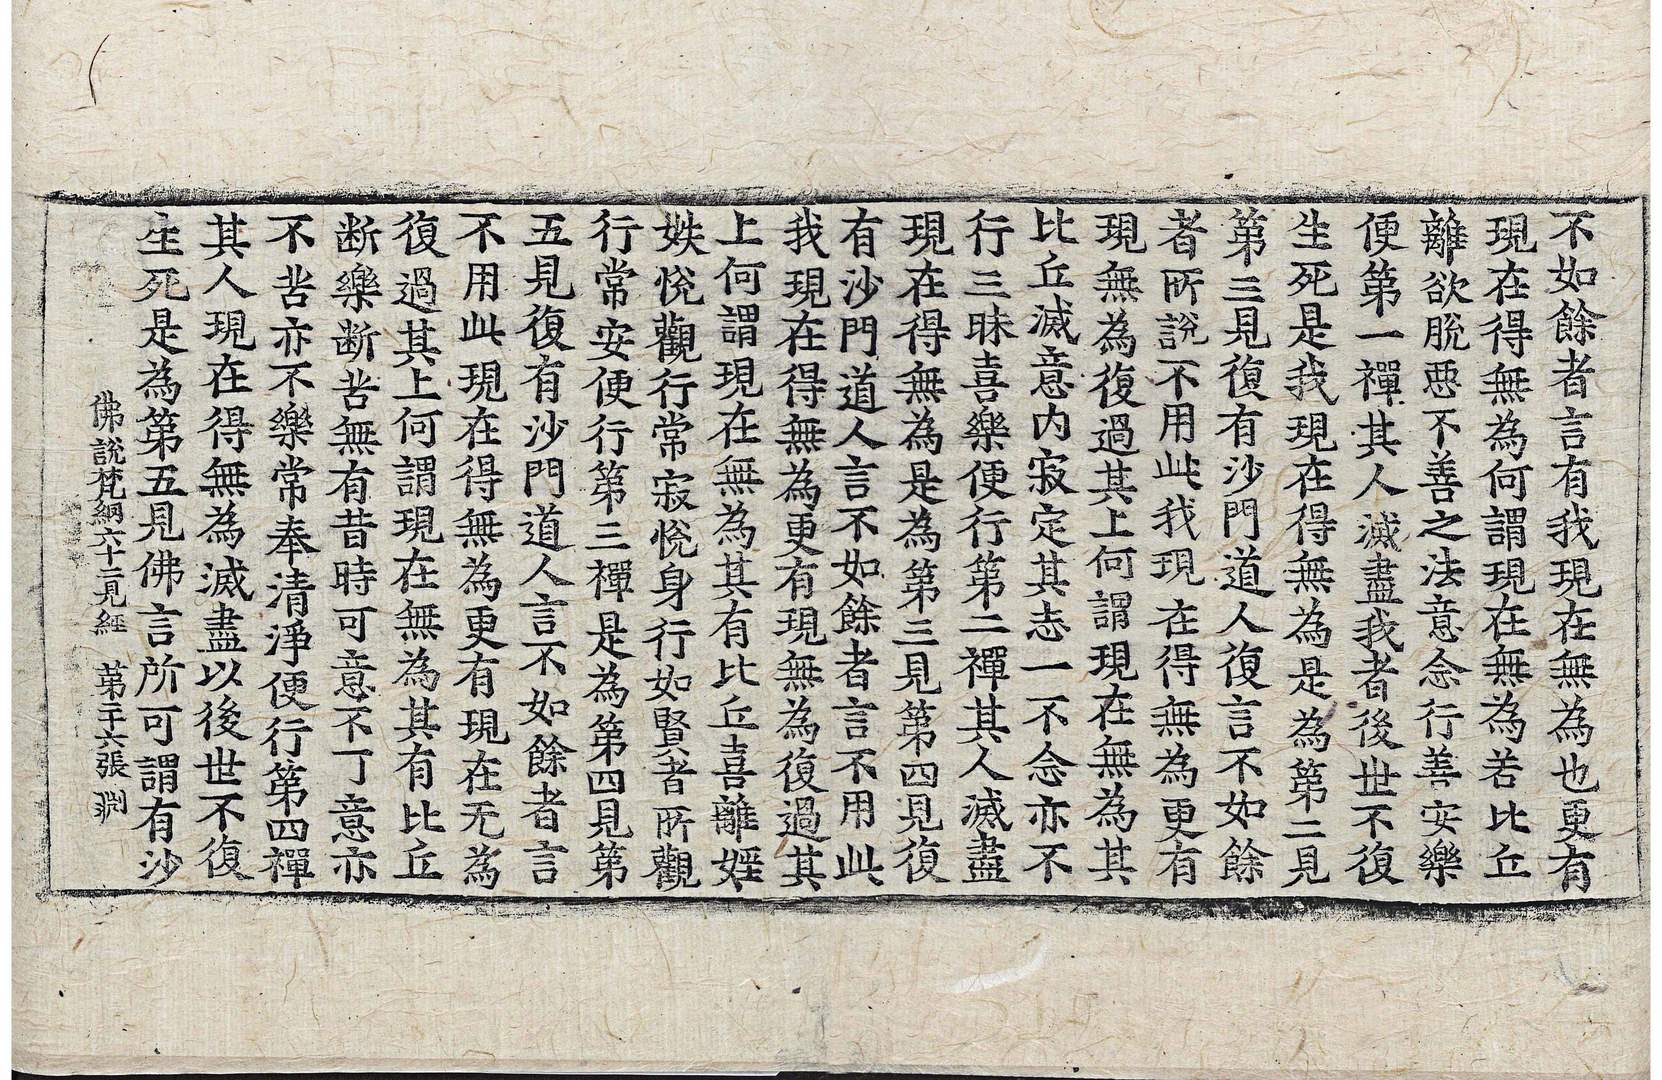 不如餘者言有我現在無為也更有
現在得無為何謂現在無為若比丘
離欲脫惡不善之法意念行善安樂
便第一禪其人滅盡我者後世不復
生死是我現在得無為是為第二見
第三見復有沙門道人復言不如餘
者所說不用此我現在得無為更有
現無為復過其上何謂現在無為其
比丘滅意內寂定其志一不念亦不
行三昧喜樂便行第二禪其人滅盡
現在得無為是為第三見第四見復
有沙門道人言不如餘者言不用此
我現在得無為更有現無為復過其
上何謂現在無為其有比丘喜離婬
妷悅觀行常寂悅身行如賢者所觀
行常安便行第三禪是為第四見第
五見復有沙門道人言不如餘者言
不用此現在得無為更有現在无為
復過其上何謂現在無為其有比丘
断樂断苦無有昔時可意不可意亦
不苦亦不樂常奉清淨便行第四禪
其人現在得無為滅盡以後世不復
生死是為第五見佛言所可謂有沙
佛說梵網六十二見經 第二十六張 渕